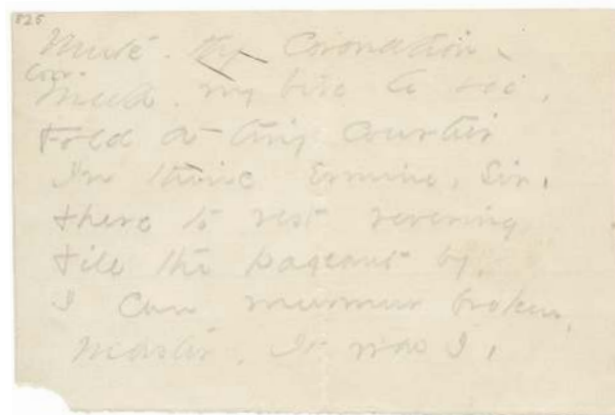 Mute - thy Coronation -
Meek - my Vive le roi,
Fold a tiny courtier
In thine Ermine, Sir,
there to rest revering
till the pageant by,
I can murmur broken,
Master - It was I -